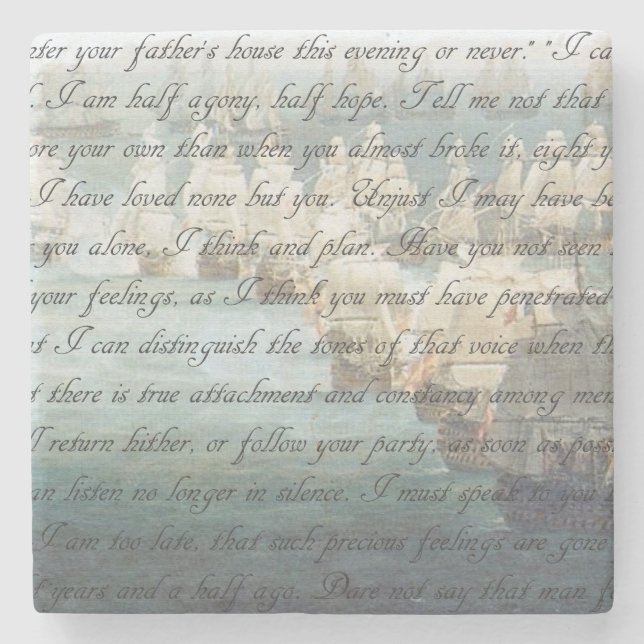 nter your father's house this evening or never." "I ca
l. I am half agony, half hope. Tell me not that
ore your own than when you almost broke it, eight y
I have loved none but you. Unjust I may have be
r you alone, I think and plan. Have you not seen
your feelings, as I think you must have penetrated
t I can distinguish the tones of that voice when th
t there is true attachment and constancy among men
ll return hither, or follow your party, as soon as poss
an listen no longer in silence. I must speak to you
I am too late, that such precious feelings are gone
t years and a half ago. Dare not say that man f